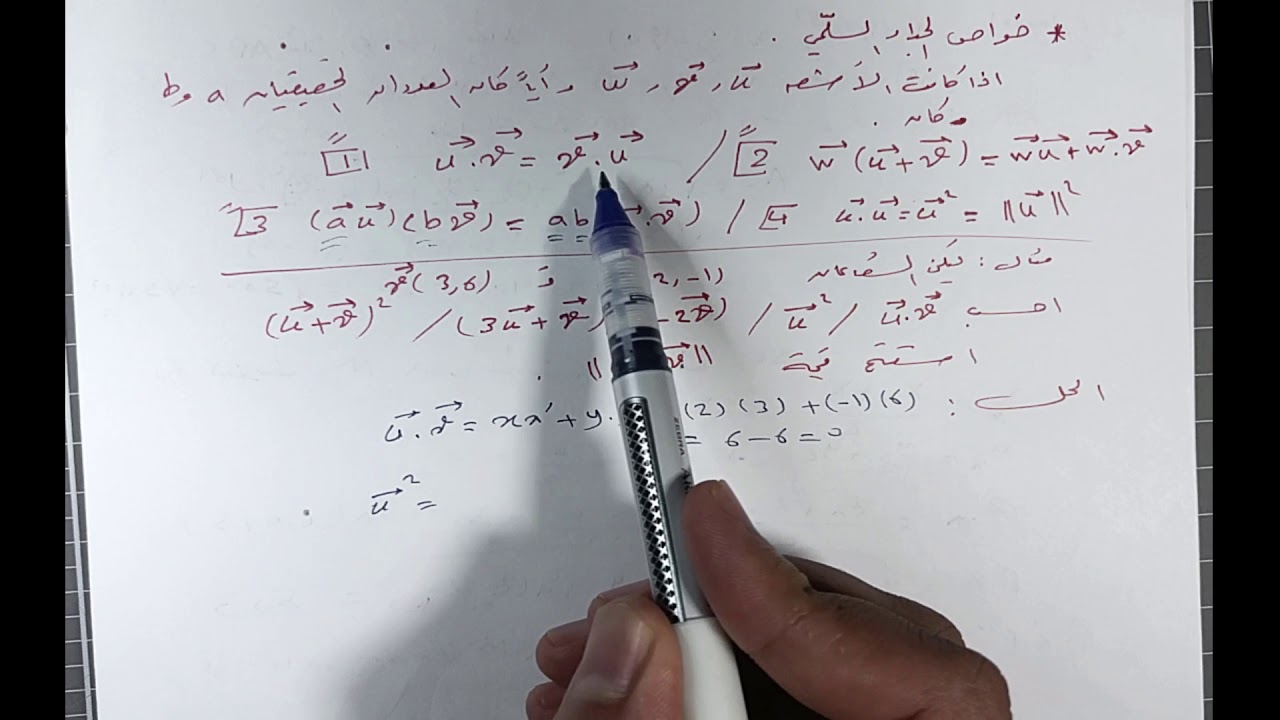 * خواص الجداء السلّمي .
اذا كانت الأشعه u⃗ , v⃗ , w⃗ و أياً كان العددان الحقيقيان a و b
كان .
1 u⃗ . v⃗ = v⃗ . u⃗ / 2 w⃗ (u⃗ + v⃗) = w⃗ u⃗ + w⃗ . v⃗
3 (a⃗ u⃗) (b v⃗) = ab . v⃗) / 4 u⃗ . u⃗ = u⃗² = ||u⃗||²
مثال : ليكن الشعاعان 2, -1) و v⃗ (3, 6)
احسب u⃗ . v⃗ / u⃗² / (3u⃗ + v⃗) - 2v⃗) / (u⃗ + v⃗)²
استنتج قيمة || v⃗|| .
الحل : u⃗ . v⃗ = xx' + y. (2) (3) + (-1) (6)
= 6 - 6 = 0
u⃗² =